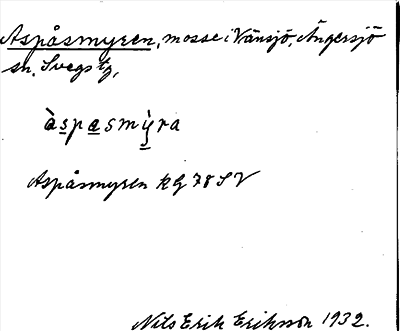 Aspåsmyren, mosse i Vänsjö, Ängersjö
sn, Svegs tg,
àspasmỳra
Aspåsmyren kg 78 SV
Nils Erik Eriksson 1932.